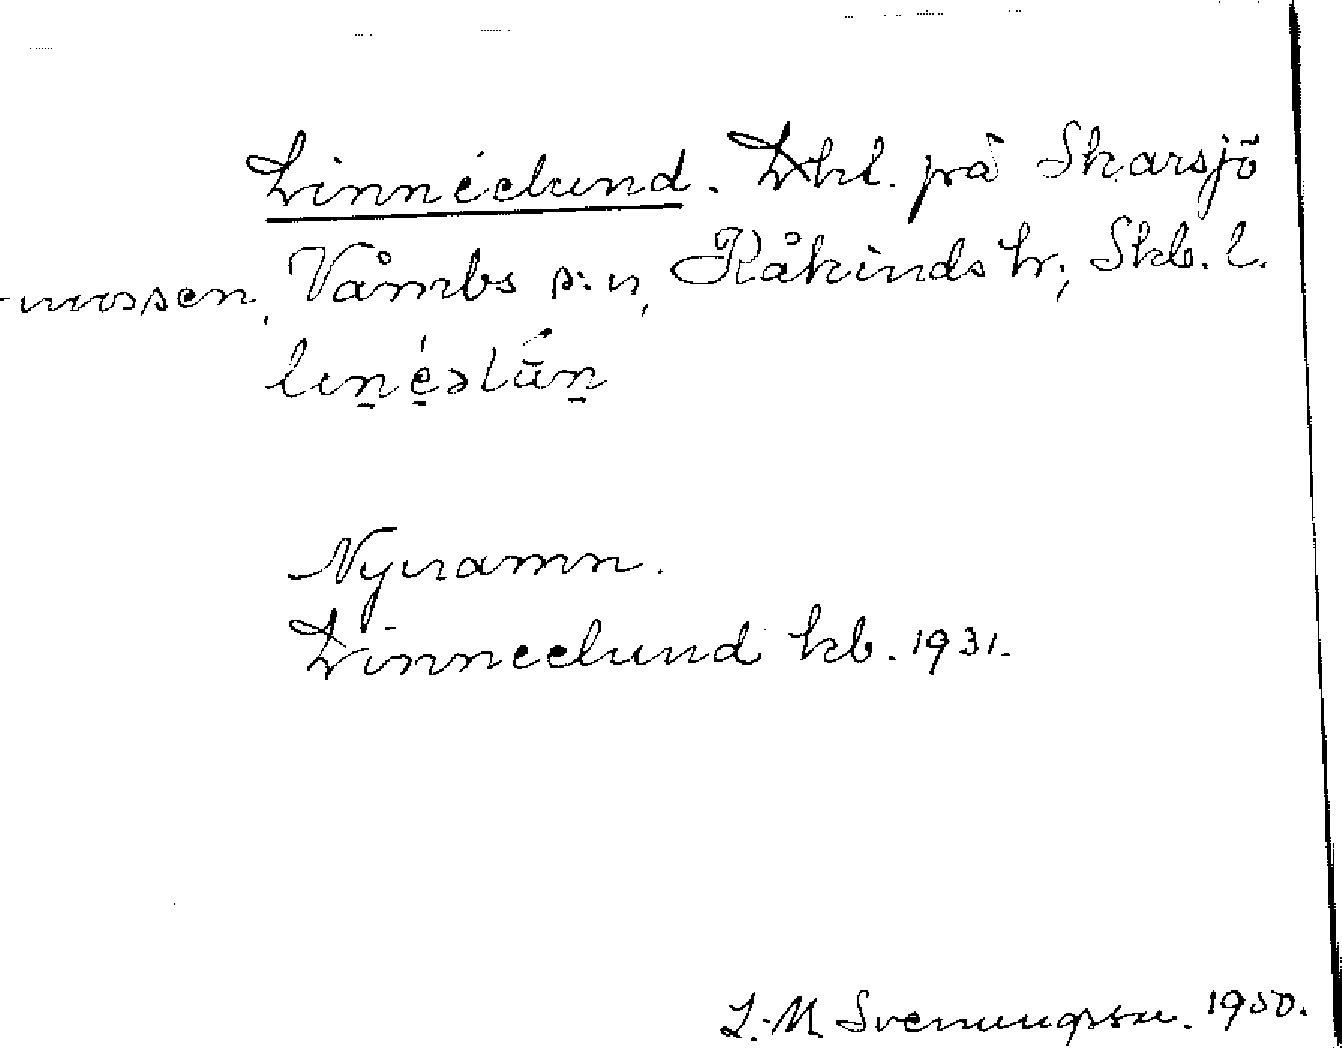 Linnéelund. Lht. på Skarsjö
-mossen, Våmbs s:n, Kåkinds hr, Skb. l.
Nynamn.
Linneelund kb. 1931.
L.-M. Svenungsson. 1950.